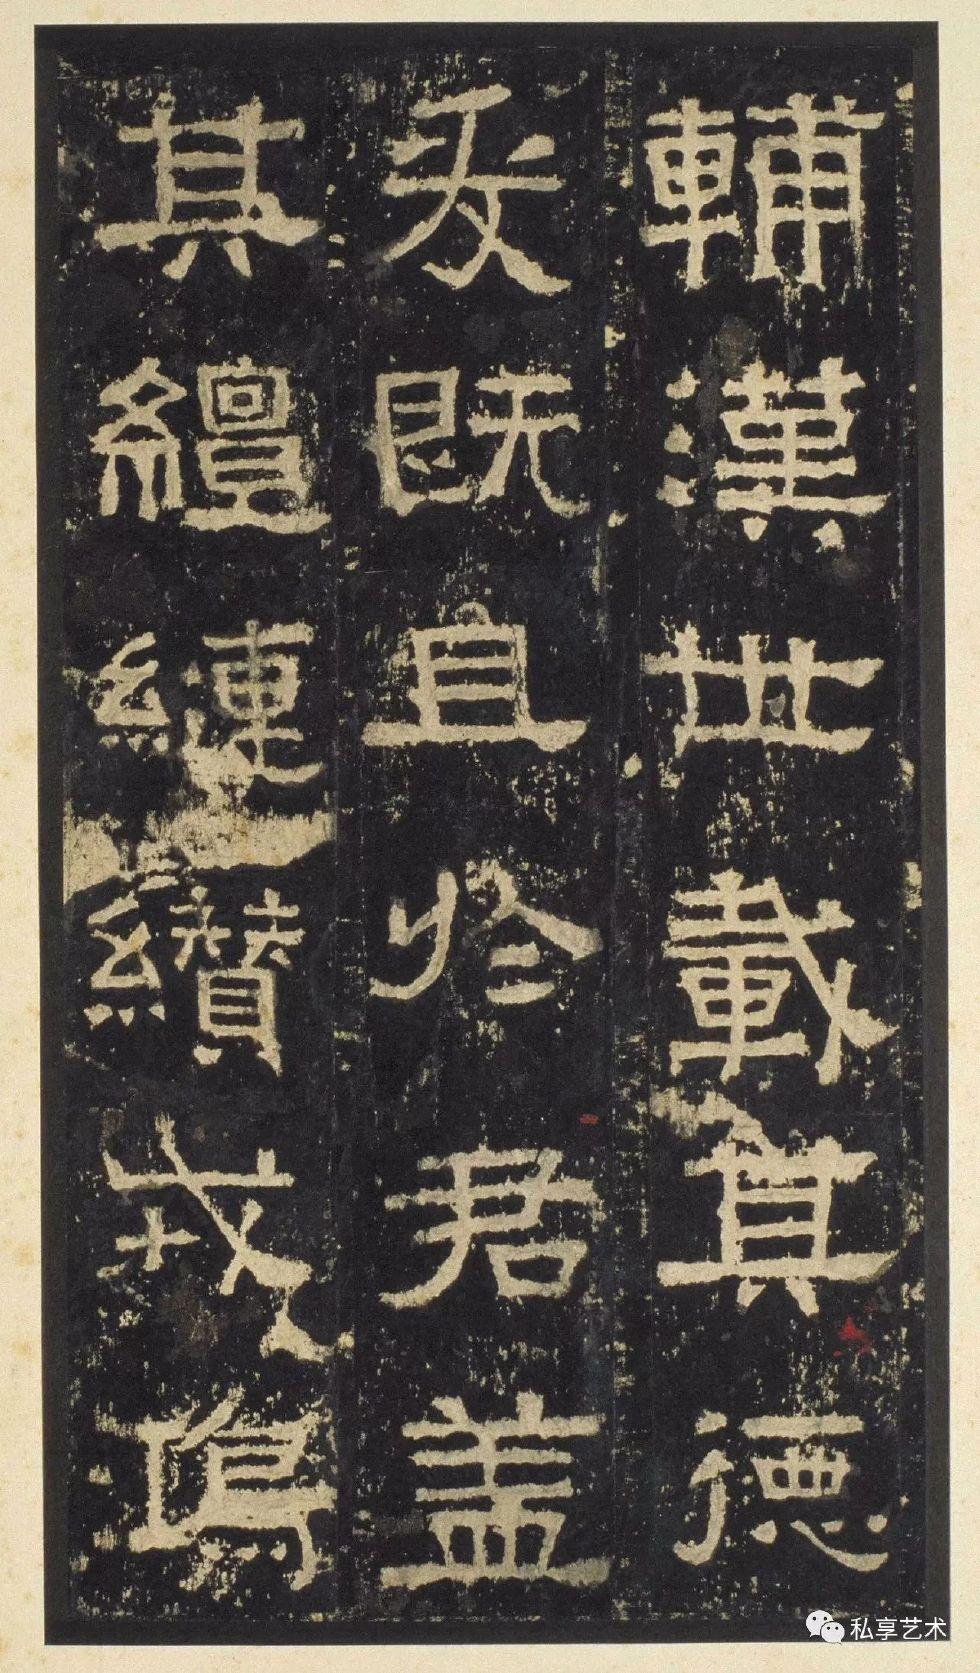 輔漢世載其德
爰既且於君盖
其繵縺纘戎鴻
私享艺术